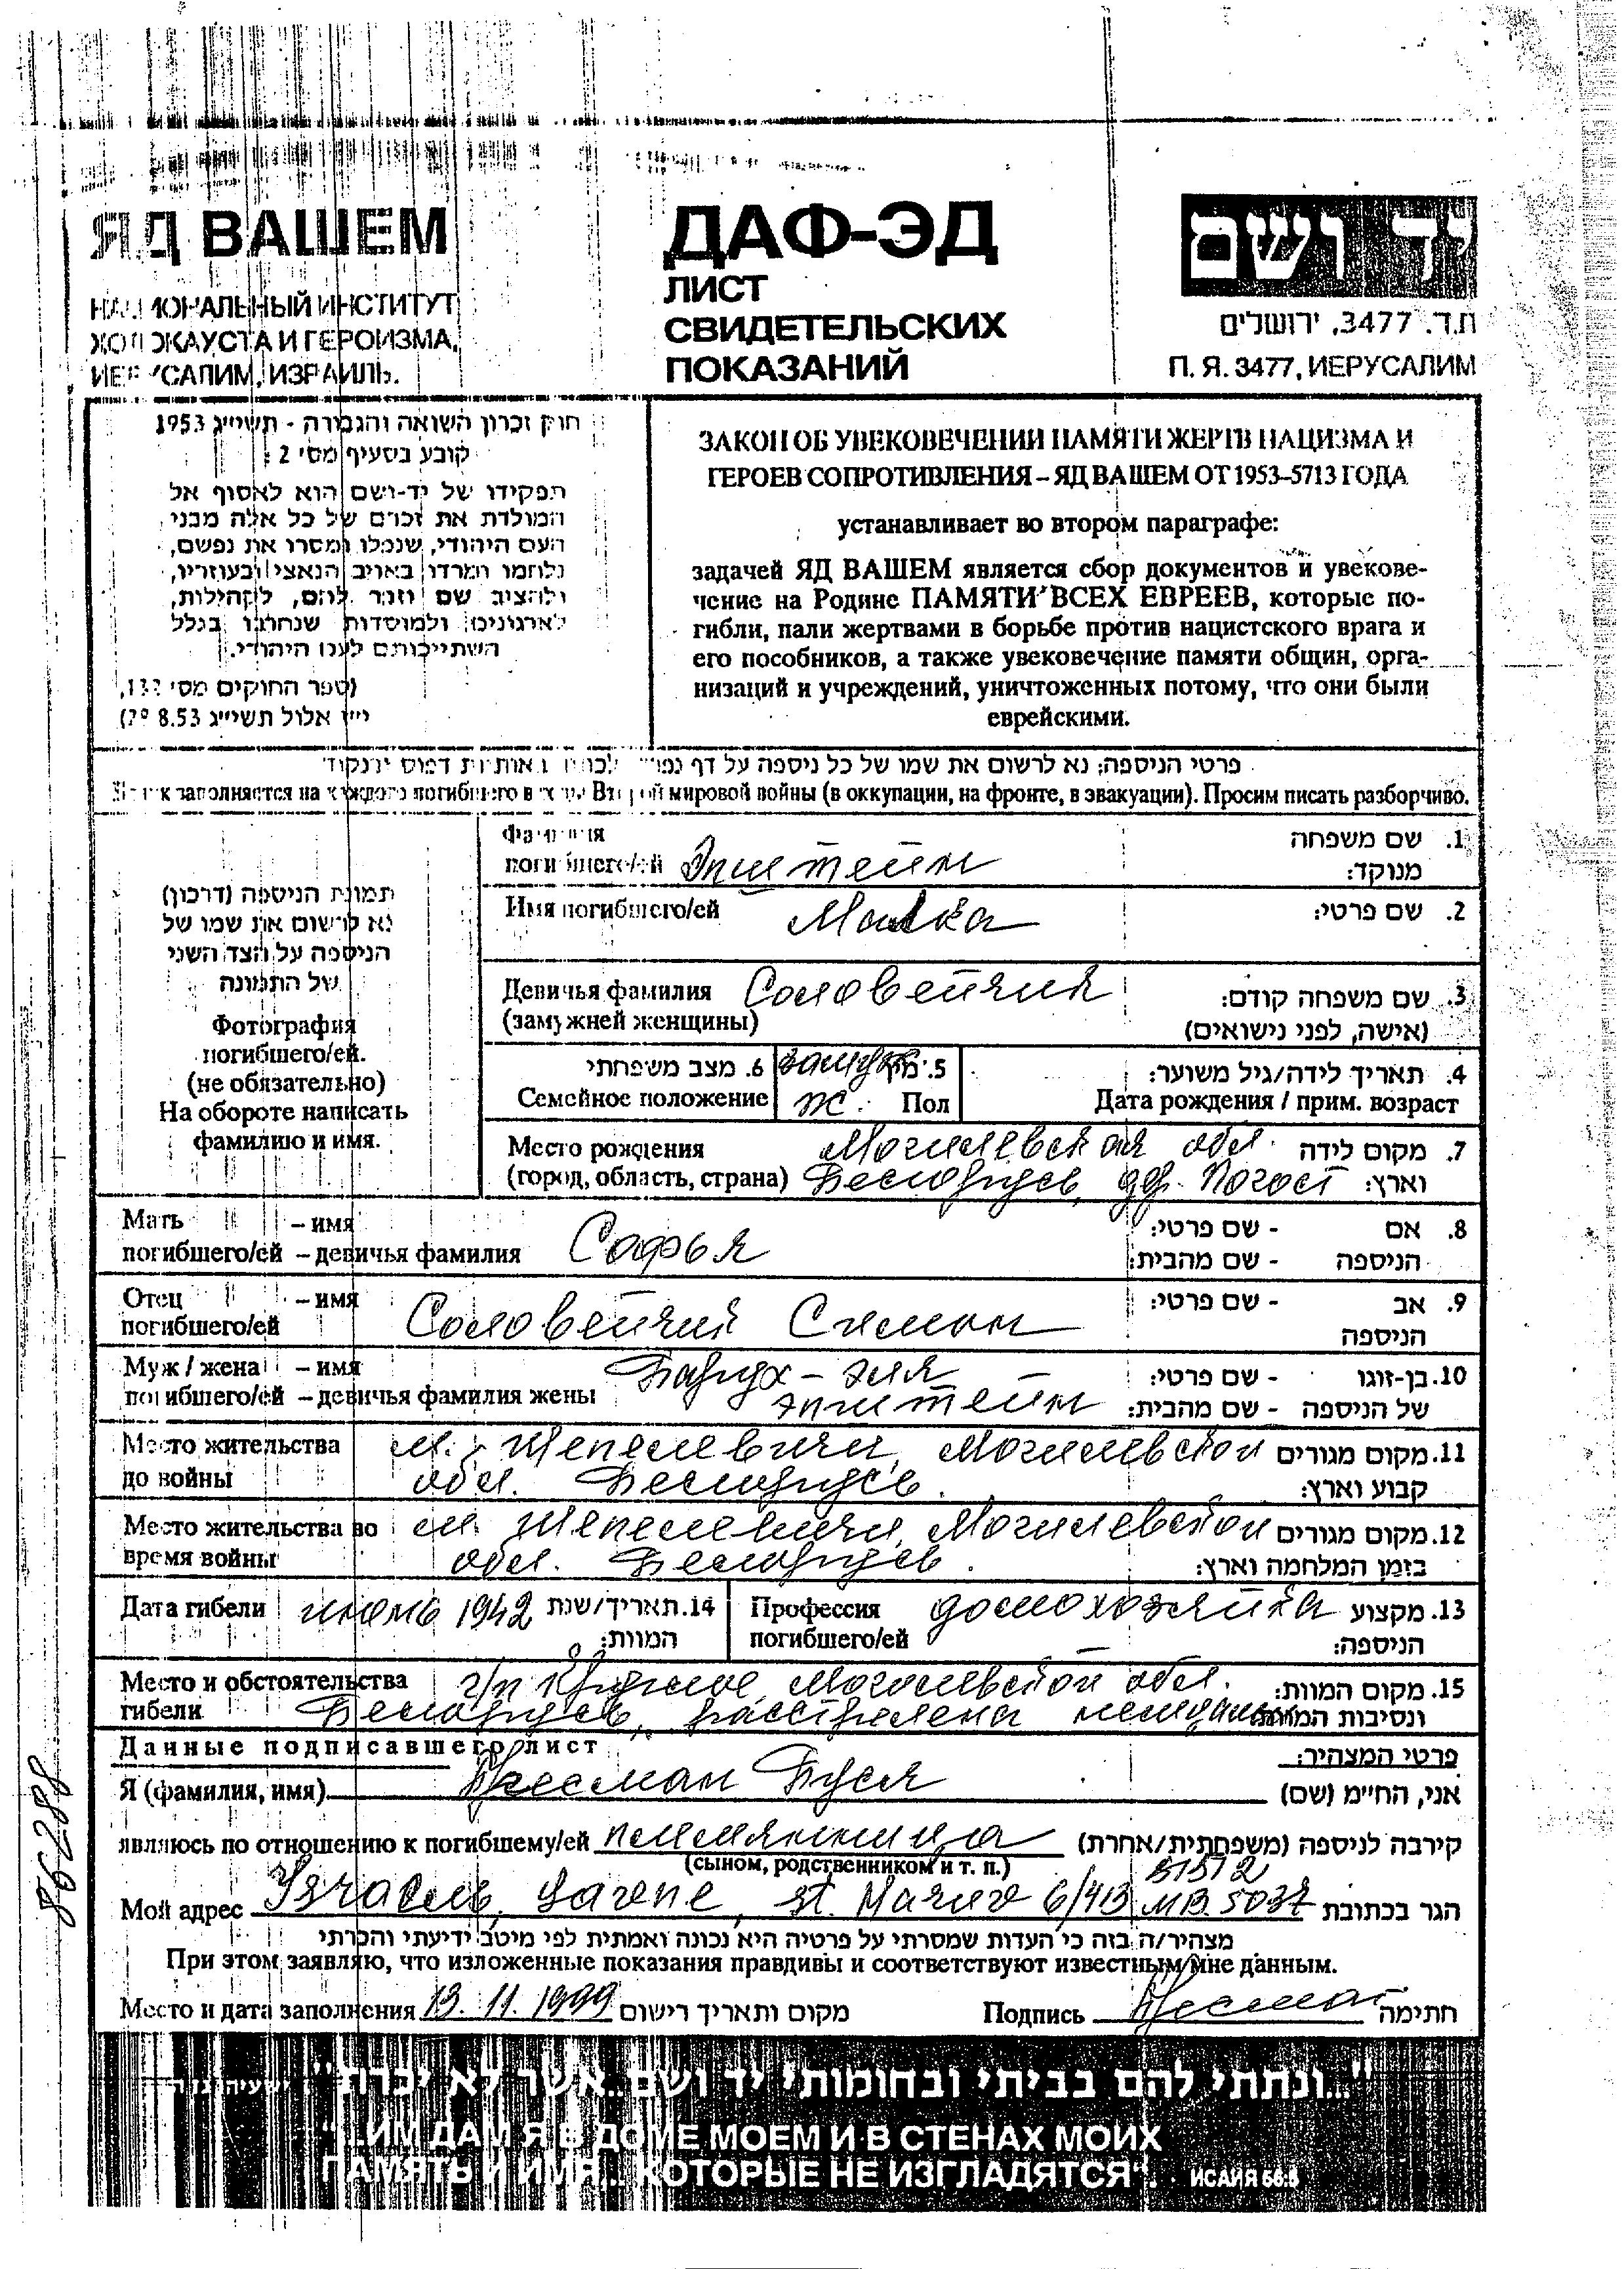 ЯД ВАШЕМ
НАЦИОНАЛЬНЫЙ ИНСТИТУТ
ХОЛОКАУСТА И ГЕРОИЗМА,
ИЕРУСАЛИМ, ИЗРАИЛЬ.
ДАФ-ЭД
ЛИСТ
СВИДЕТЕЛЬСКИХ
ПОКАЗАНИЙ
יד ושם
ת.ד. 3477, ירושלים
П. Я. 3477, ИЕРУСАЛИМ
חוק זכרון השואה והגבורה - תשי״ג 1953
קובע בסעיף מס׳ 2:
תפקידו של יד-ושם הוא לאסוף אל
המולדת את זכרם של כל אלה מבני
העם היהודי, שנפלו ומסרו את נפשם,
נלחמו ומרדו באויב הנאצי ובעוזריו,
ולהציב שם וזכר להם, לקהילות,
לארגונים ולמוסדות שנחרבו בגלל
השתייכותם לעם היהודי.
(ספר החוקים מס׳ 132,
י״ז אלול תשי״ג 28.8.53)
ЗАКОН ОБ УВЕКОВЕЧЕНИИ ПАМЯТИ ЖЕРТВ НАЦИЗМА И
ГЕРОЕВ СОПРОТИВЛЕНИЯ – ЯД ВАШЕМ ОТ 1953–5713 ГОДА
устанавливает во втором параграфе:
задачей ЯД ВАШЕМ является сбор документов и увекове-
чение на Родине ПАМЯТИ ВСЕХ ЕВРЕЕВ, которые по-
гибли, пали жертвами в борьбе против нацистского врага и
его пособников, а также увековечение памяти общин, орга-
низаций и учреждений, уничтоженных потому, что они были
еврейскими.
פרטי הניספה: נא לרשום את שמו של כל ניספה על דף נפרד, לכתוב באותיות דפוס ולנקוד
Бланк заполняется на каждого погибшего в ходе Второй мировой войны (в оккупации, на фронте, в эвакуации). Просим писать разборчиво.
תמונת הניספה (דרכון)
נא לרשום את שמו של
הניספה על הצד השני
של התמונה
Фотография
погибшего/ей.
(не обязательно)
На обороте написать
фамилию и имя.
Фамилия
погибшего/ей Эпштейн
1. שם משפחה
מנוקד:
Имя погибшего/ей Малка 2. שם פרטי:
Девичья фамилия Соловейчик 3. שם משפחה קודם:
(замужней женщины) (אישה, לפני נישואים)
6. מצב משפחתי замужем 5. מין 4. תאריך לידה/גיל משוער:
Семейное положение ж. Пол Дата рождения / прим. возраст
Место рождения Могилевская обл. 7. מקום לידה
(город, область, страна) Белорусь, дер. Погост וארץ:
Мать – имя Софья 8. אם - שם פרטי:
погибшего/ей – девичья фамилия הניספה - שם מהבית:
Отец – имя Соловейчик Симон 9. אב - שם פרטי:
погибшего/ей הניספה
Муж / жена – имя Барух-Эля 10. בן-זוגו - שם פרטי:
погибшего/ей – девичья фамилия жены Эпштейн של הניספה - שם מהבית:
Место жительства м. Шепелевичи, Могилевской 11. מקום מגורים
до войны обл. Белорусь. קבוע וארץ:
Место жительства во м. Шепелевичи, Могилевской 12. מקום מגורים
время войны обл. Белорусь. בזמן המלחמה וארץ:
Дата гибели 1942 14. תאריך/שנת Профессия домохозяйка 13. מקצוע
המוות: погибшего/ей הניספה:
Место и обстоятельства г/п Круглое, Могилевской обл. 15. מקום המוות:
гибели Белорусь, расстреляна немцами ונסיבות המוות:
Данные подписавшего лист פרטי המצהיר:
Я (фамилия, имя) Буся אני, החי״מ (שם)
являюсь по отношению к погибшему/ей племянница קירבה לניספה (משפחתית/אחרת)
(сыном, родственником и т. п.) 51512
Мой адрес Израель, Yavene, st. 6/413 הגר בכתובת
מצהיר/ה בזה כי העדות שמסרתי על פרטיה היא נכונה ואמתית לפי מיטב ידיעתי והכרתי
При этом заявляю, что изложенные показания правдивы и соответствуют известным мне данным.
Место и дата заполнения 13. 11. 1999 מקום ותאריך רישום Подпись חתימה
86288
"...ונתתי להם בביתי ובחומותי יד ושם...אשר לא יכרת"
ИМ ДАМ Я В ДОМЕ МОЕМ И В СТЕНАХ МОИХ
ПАМЯТЬ И ИМЯ... КОТОРЫЕ НЕ ИЗГЛАДЯТСЯ". ИСАЙЯ 56:5